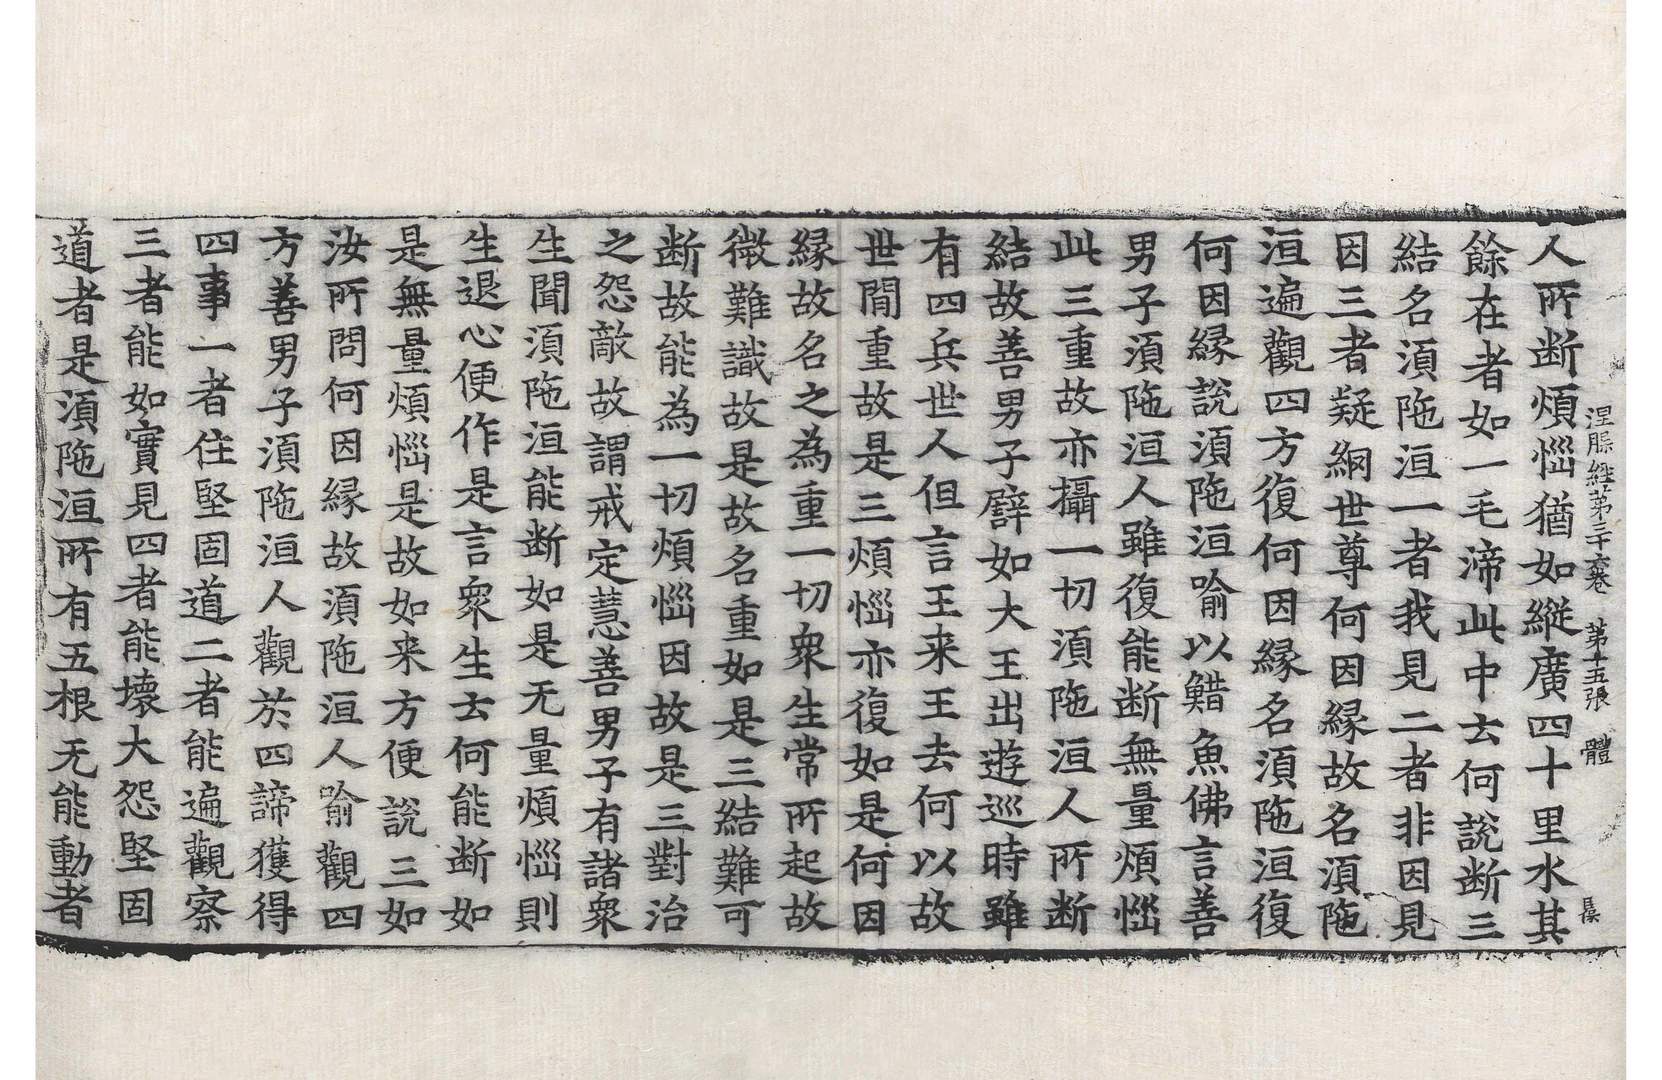 涅脲經第三十六卷　第十五張　體
人所断煩惱猶如縱廣四十里水其
餘在者如一毛渧此中去何説断三
結名湏陁洹一者我見二者非因見
因三者疑網世尊何因縁故名湏陁
洹遍觀四方復何因縁名湏陁洹復
何因縁說湏陁洹喻以䱜魚佛言善
男子湏陁洹人雖復能断無量煩惱
此三重故亦攝一切湏陁洹人所断
結故善男子譬如大王出遊巡時雖
有四兵世人但言王来王去何以故
世閒重故是三煩惱亦復如是何因
縁故名之為重一切衆生常所起故
微難識故是故名重如是三結難可
断故能為一切煩惱因故是三對治
之怨敵故謂戒定慧善男子有諸衆
生聞湏陁洹能断如是无量煩惱則
生退心便作是言衆生去何能断如
是無量煩惱是故如来方便說三如
汝所問何因縁故湏陁洹人喻觀四
方善男子湏陁洹人觀於四諦獲得
四事一者住堅固道二者能遍觀察
三者能如實見四者能壞大怨堅固
道者是湏陁洹所有五根无能動者